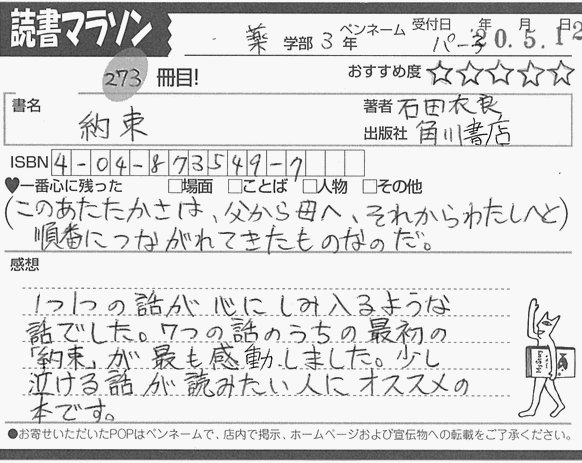 読書マラソン
薬 学部 3 年 ペンネーム パーネ
受付日 年 月 日
20.5.12
273 冊目!
おすすめ度 ☆☆☆☆☆
書名 約束
著者 石田衣良
出版社 角川書店
ISBN 4-04-873549-7
♥一番心に残った □場面 □ことば □人物 □その他
(このあたたかさは、父から母へ、それからわたしへと)
順番につながれてきたものなのだ。
感想
1つ1つの話が心にしみ入るような
話でした。7つの話のうちの最初の
「約束」が最も感動しました。少し
泣ける話が読みたい人にオススメの
本です。
●お寄せいただいたPOPはペンネームで、店内で掲示、ホームページおよび宣伝物への転載をご了承ください。